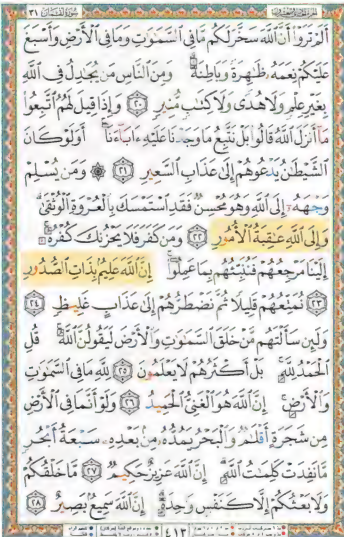 أَلَمْ تَرَوْا۟ أَنَّ ٱللَّهَ سَخَّرَ لَكُم مَّا فِى ٱلسَّمَٰوَٰتِ وَمَا فِى ٱلْأَرْضِ وَأَسْبَغَ
عَلَيْكُمْ نِعَمَهُۥ ظَٰهِرَةً وَبَاطِنَةً ۗ وَمِنَ ٱلنَّاسِ مَن يُجَٰدِلُ فِى ٱللَّهِ
بِغَيْرِ عِلْمٍ وَلَا هُدًى وَلَا كِتَٰبٍ مُّنِيرٍ ٢٠ وَإِذَا قِيلَ لَهُمُ ٱتَّبِعُوا۟
مَآ أَنزَلَ ٱللَّهُ قَالُوا۟ بَلْ نَتَّبِعُ مَا وَجَدْنَا عَلَيْهِ ءَابَآءَنَآ ۚ أَوَلَوْ كَانَ
ٱلشَّيْطَٰنُ يَدْعُوهُمْ إِلَىٰ عَذَابِ ٱلسَّعِيرِ ٢١ ۞ وَمَن يُسْلِمْ
وَجْهَهُۥٓ إِلَى ٱللَّهِ وَهُوَ مُحْسِنٌ فَقَدِ ٱسْتَمْسَكَ بِٱلْعُرْوَةِ ٱلْوُثْقَىٰ ۗ
وَإِلَى ٱللَّهِ عَٰقِبَةُ ٱلْأُمُورِ ٢٢ وَمَن كَفَرَ فَلَا يَحْزُنكَ كُفْرُهُۥٓ ۚ
إِلَيْنَا مَرْجِعُهُمْ فَنُنَبِّئُهُم بِمَا عَمِلُوٓا۟ ۚ إِنَّ ٱللَّهَ عَلِيمٌۢ بِذَاتِ ٱلصُّدُورِ
٢٣ نُمَتِّعُهُمْ قَلِيلًا ثُمَّ نَضْطَرُّهُمْ إِلَىٰ عَذَابٍ غَلِيظٍ ٢٤
وَلَئِن سَأَلْتَهُم مَّنْ خَلَقَ ٱلسَّمَٰوَٰتِ وَٱلْأَرْضَ لَيَقُولُنَّ ٱللَّهُ ۚ قُلِ
ٱلْحَمْدُ لِلَّهِ ۚ بَلْ أَكْثَرُهُمْ لَا يَعْلَمُونَ ٢٥ لِلَّهِ مَا فِى ٱلسَّمَٰوَٰتِ
وَٱلْأَرْضِ ۚ إِنَّ ٱللَّهَ هُوَ ٱلْغَنِىُّ ٱلْحَمِيدُ ٢٦ وَلَوْ أَنَّمَا فِى ٱلْأَرْضِ
مِن شَجَرَةٍ أَقْلَٰمٌ وَٱلْبَحْرُ يَمُدُّهُۥ مِنۢ بَعْدِهِۦ سَبْعَةُ أَبْحُرٍ
مَّا نَفِدَتْ كَلِمَٰتُ ٱللَّهِ ۗ إِنَّ ٱللَّهَ عَزِيزٌ حَكِيمٌ ٢٧ مَّا خَلْقُكُمْ
وَلَا بَعْثُكُمْ إِلَّا كَنَفْسٍ وَٰحِدَةٍ ۗ إِنَّ ٱللَّهَ سَمِيعٌۢ بَصِيرٌ ٢٨
٤١٣